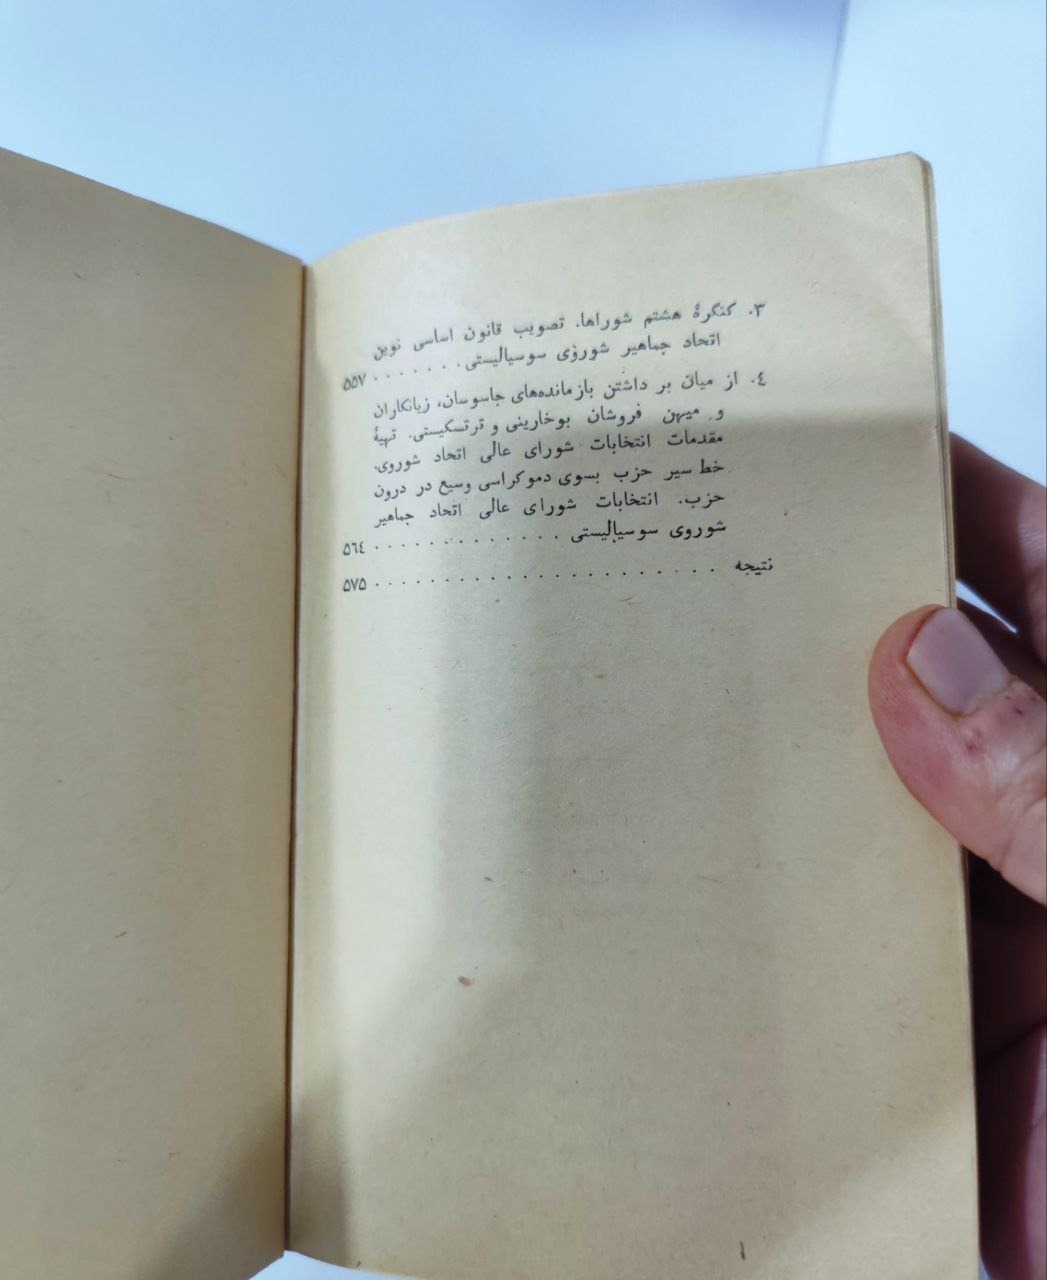 ۳. کنگرهٔ هشتم شوراها. تصویب قانون اساسی نوین
اتحاد جماهیر شوروی سوسیالیستی. . . . . . . ۵۵۷
٤. از میان بر داشتن بازمانده‌های جاسوسان، زیانکاران
و میهن فروشان بوخارینی و ترتسکیستی. تهیهٔ
مقدمات انتخابات شورای عالی اتحاد شوروی.
خط سیر حزب بسوی دموکراسی وسیع در درون
حزب. انتخابات شورای عالی اتحاد جماهیر
شوروی سوسیالیستی . . . . . . . . . . . . . ۵٦٤
نتیجه . . . . . . . . . . . . . . . . . . . . . ۵۷۵